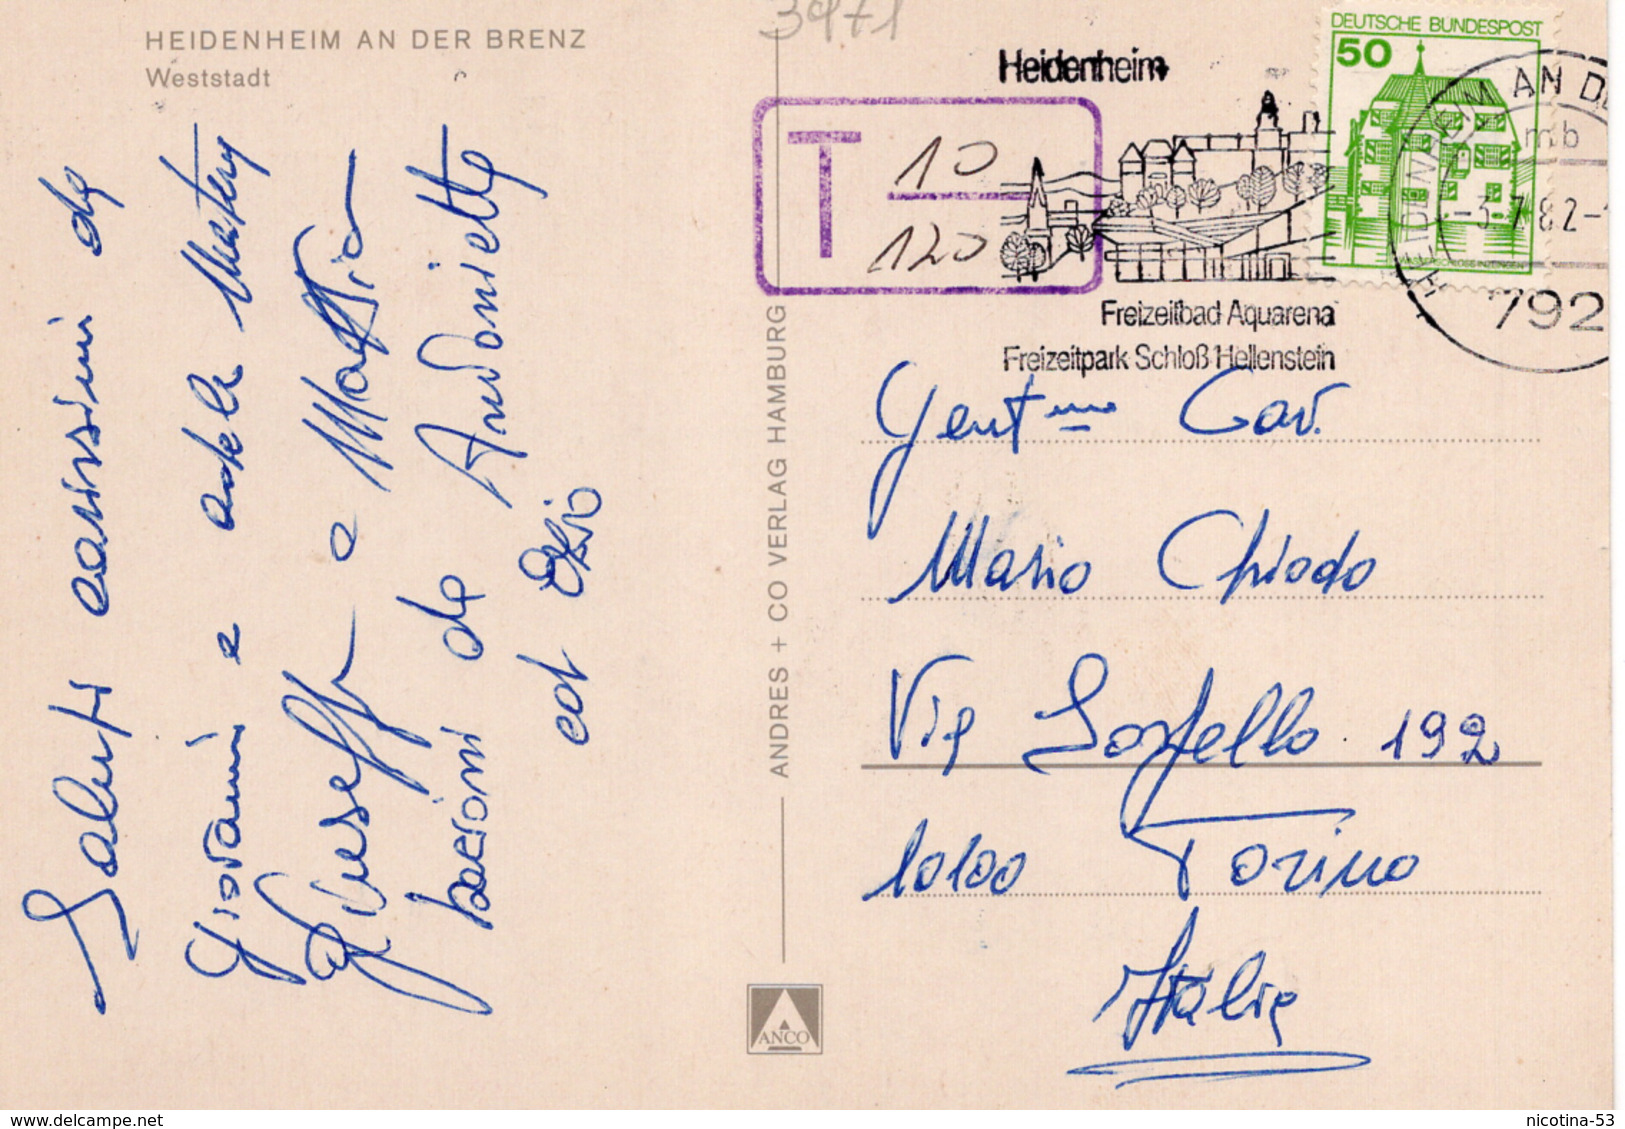 3971
HEIDENHEIM AN DER BRENZ
Weststadt
Saluti carissimi da
Giovanni e
Giuseppe e Mattia
bacioni da Antonietta
ed Ezio
ANDRES + CO VERLAG HAMBURG
ANCO
T 10
120
Heidenheim
Freizeitbad Aquarena
Freizeitpark Schloß Hellenstein
DEUTSCHE BUNDESPOST
50
HEIDENHEIM AN D
mb
-3.7.82-
792
Gent.mo Cav.
Mario Chiodo
Via 192
10100 Torino
Italia
nicotina-53